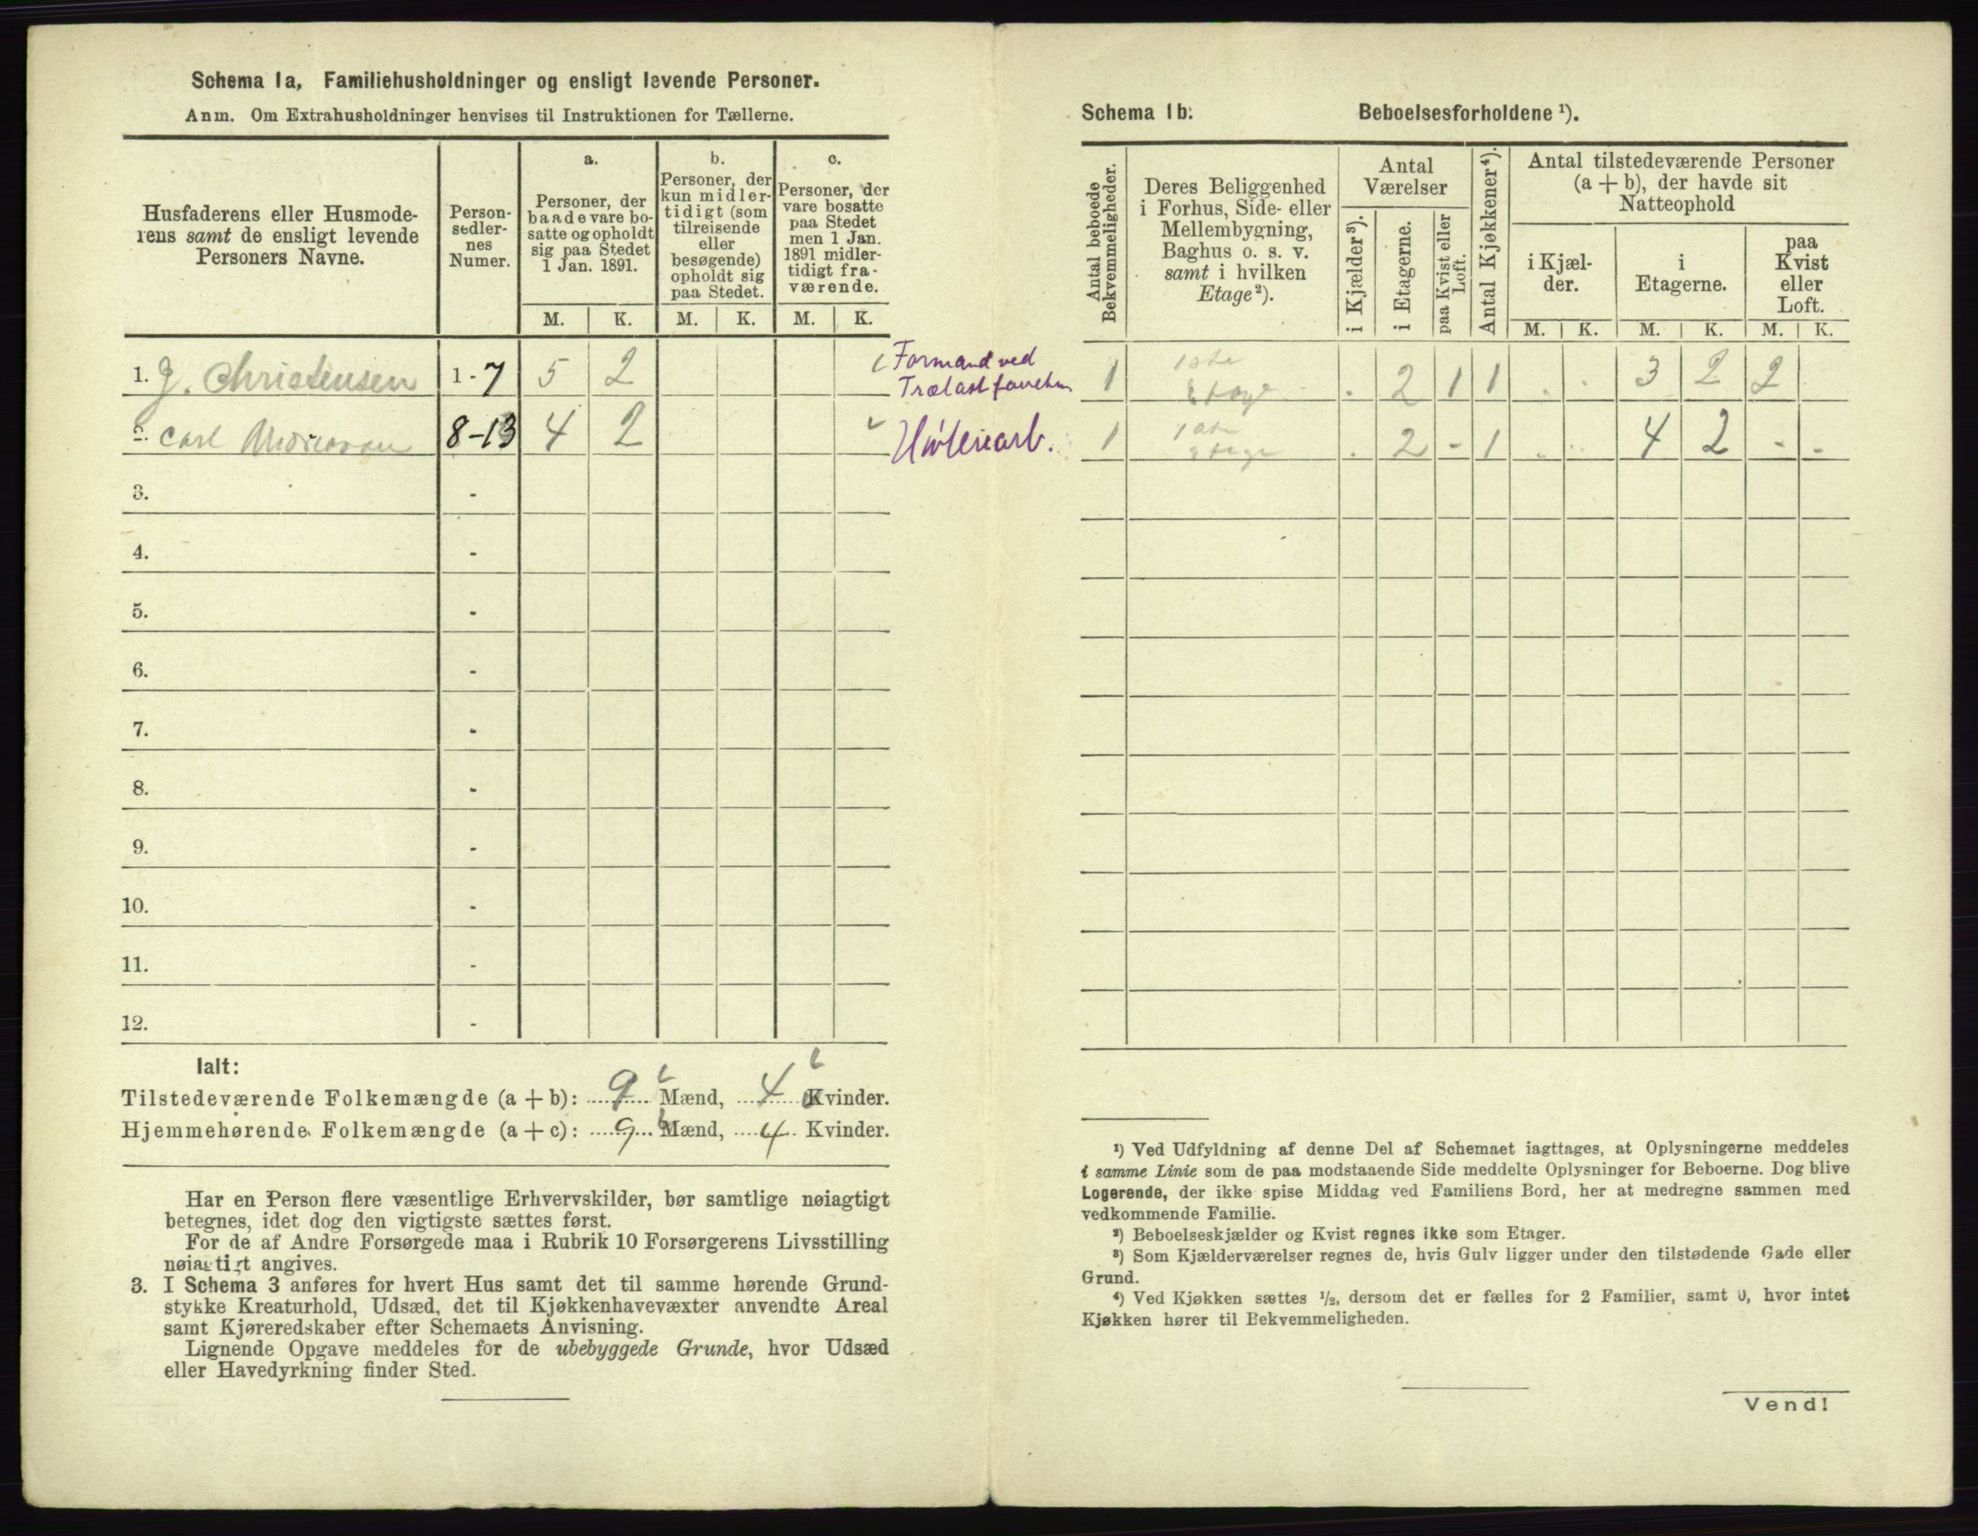 Schema 1a, Familiehusholdninger og ensligt levende Personer.
Anm. Om Extrahusholdninger henvises til Instruktionen for Tællerne.
Husfaderens eller Husmode-
rens samt de ensligt levende
Personers Navne.
Person-
sedler-
nes
Numer.
a.
Personer, der
baade vare bo-
satte og opholdt
sig paa Stedet
1 Jan. 1891.
b.
Personer, der
kun midler-
tidigt (som
tilreisende
eller
besøgende)
opholdt sig
paa Stedet.
c.
Personer, der
vare bosatte
paa Stedet
men 1 Jan.
1891 midler-
tidigt fra-
værende.
M. K. M. K. M. K.
1. J. Christensen 1-7 5 2 Formand ved
2. Carl 8-13 4 2
3. -
4. -
5. -
6. -
7. -
8. -
9. -
10. -
11. -
12. -
Ialt:
Tilstedeværende Folkemængde (a + b): 9 Mænd, 4 Kvinder.
Hjemmehørende Folkemængde (a + c): 9 Mænd, 4 Kvinder.
Har en Person flere væsentlige Erhvervskilder, bør samtlige nøiagtigt
betegnes, idet dog den vigtigste sættes først.
For de af Andre Forsørgede maa i Rubrik 10 Forsørgerens Livsstilling
nøiagtigt angives.
3. I Schema 3 anføres for hvert Hus samt det til samme hørende Grund-
stykke Kreaturhold, Udsæd, det til Kjøkkenhavevæxter anvendte Areal
samt Kjøreredskaber efter Schemaets Anvisning.
Lignende Opgave meddeles for de ubebyggede Grunde, hvor Udsæd
eller Havedyrkning finder Sted.
Schema 1b: Beboelsesforholdene ¹).
Antal beboede
Bekvemmeligheder.
Deres Beliggenhed
i Forhus, Side- eller
Mellembygning,
Baghus o. s. v.
samt i hvilken
Etage²).
Antal
Værelser
i Kjælder³).
i Etagerne.
paa Kvist eller
Loft.
Antal Kjøkkener⁴).
Antal tilstedeværende Personer
(a + b), der havde sit
Natteophold
i Kjæl-
der.
i
Etagerne.
paa
Kvist
eller
Loft.
M. K. M. K. M. K.
1 1ste Etage . 2 1 1 . . 3 2 2
1 1ste Etage . 2 - 1 . . 4 2 - -
¹) Ved Udfyldning af denne Del af Schemaet iagttages, at Oplysningerne meddeles
i samme Linie som de paa modstaaende Side meddelte Oplysninger for Beboerne. Dog blive
Logerende, der ikke spise Middag ved Familiens Bord, her at medregne sammen med
vedkommende Familie.
²) Beboelseskjælder og Kvist regnes ikke som Etager.
³) Som Kjælderværelser regnes de, hvis Gulv ligger under den tilstødende Gade eller
Grund.
⁴) Ved Kjøkken sættes ½, dersom det er fælles for 2 Familier, samt 0, hvor intet
Kjøkken hører til Bekvemmeligheden.
Vend!